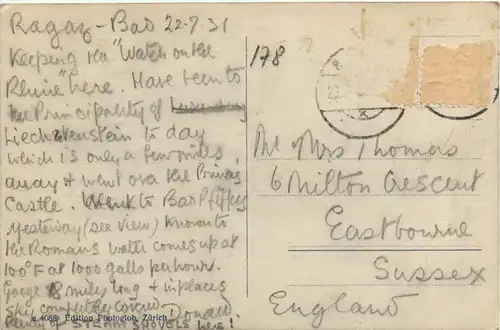 Ragaz - Bad 22-7.31
Keeping the "Watch on the
Rhine" here. Have been to
the Principality of Luxemburg
Liechtenstein to day
which is only a few miles
away & went over the Princes
Castle. Went to Bad Pfäfers
yesterday (see view) known to
the Romans water comes up at
100°F at 1000 galls per hour.
Gorge 8 miles long & in places
sky completely covered
Donald
4088 Edition Photoglob, Zürich
Plenty of STEAM SHOVELS here!
178
Mr Mrs Thomas
6 Milton Crescent
Eastbourne
Sussex
England